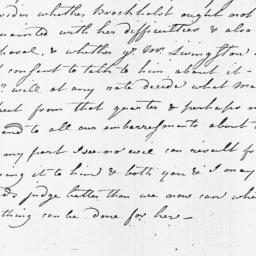 whether Brockholst ought not
with her difficulties & also
& whether yr. Mr. Livingston
consent to talk to him about it -
will at any rate decide what
from that quarter & perhaps
to all our embarrassments about
my part I see no evil can result
it to him & both you & I may
judge better than we now can
thing can be done for her -